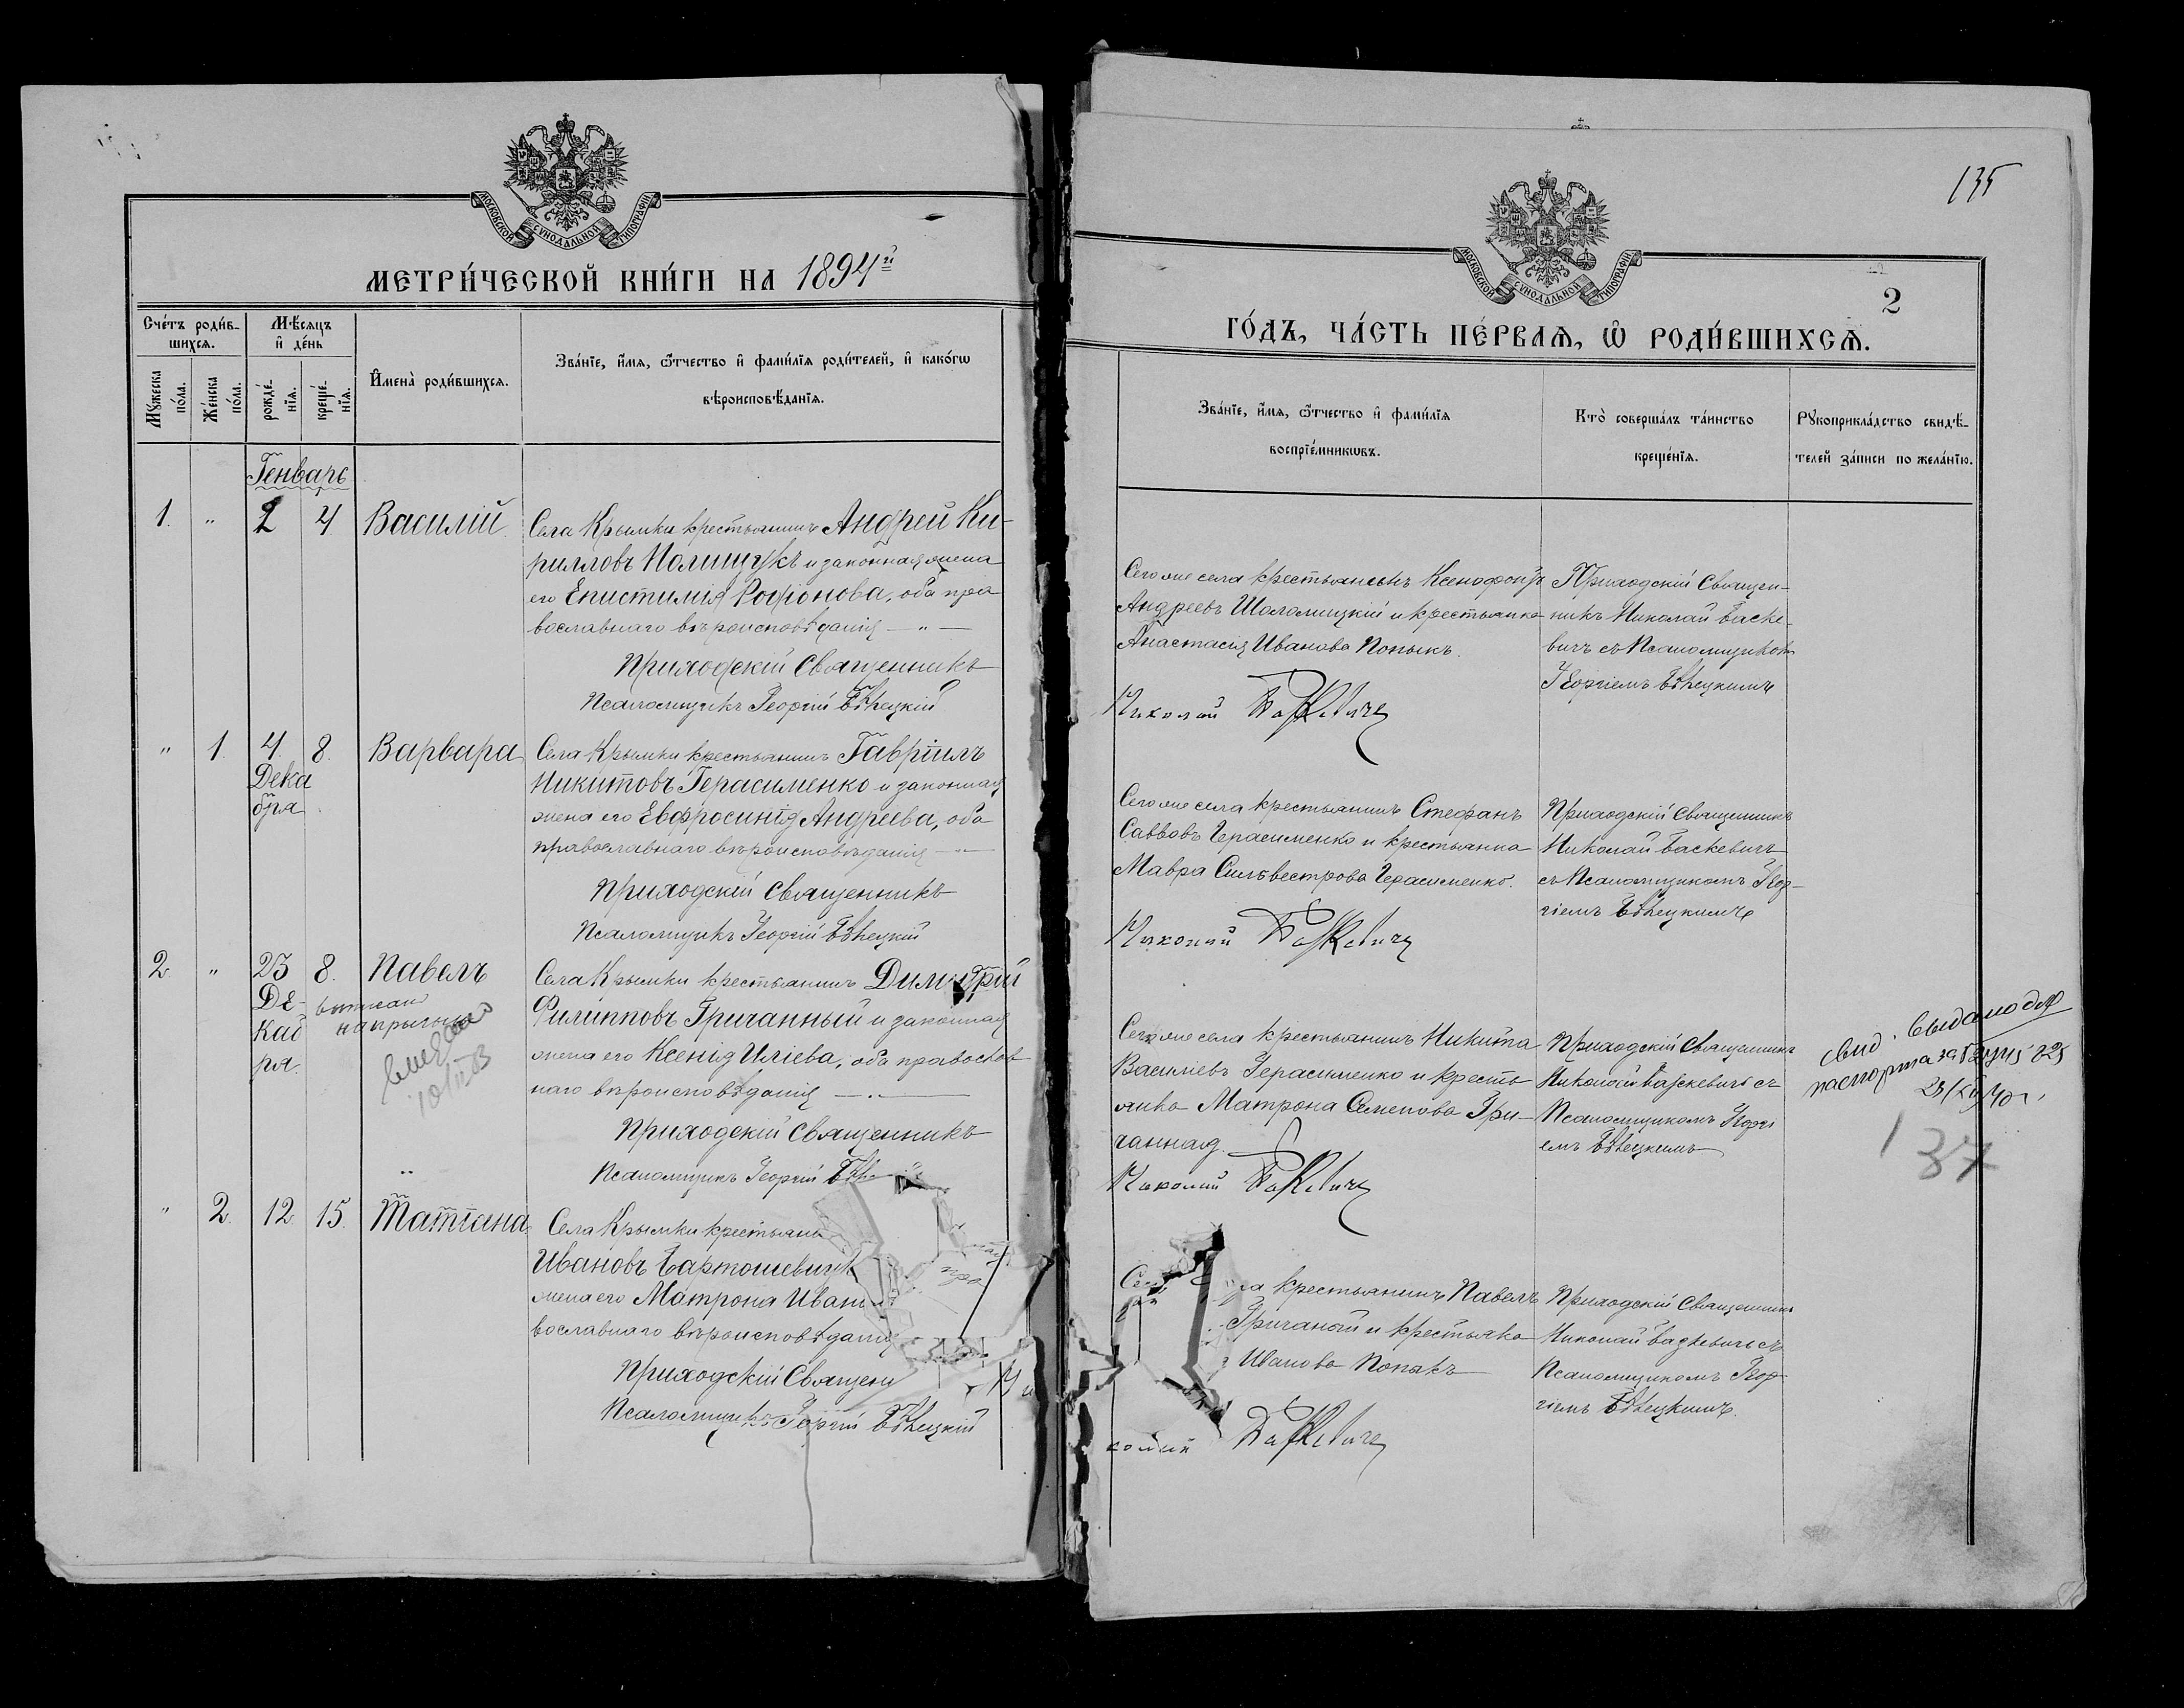 МОСКОВСКОЙ СѴНОДАЛЬНОЙ ТИПОГРАФІИ
МЕТРИ́ЧЕСКОЙ КНИ́ГИ НА 1894й
Сче́тъ роди́в-
шихся.
Мѣ́сяцъ
и҆ де́нь
Мꙋ́жеска
по́ла.
Же́нска
по́ла.
рожде́-
нїя.
креще́-
нїя.
И҆мена̀ роди́вшихся.
Зва́нїе, и҆́мя, ѻ҆́тчество и҆ фами́лїя роди́телей, и҆ како́гѡ
вѣроисповѣ́данїя.
Генварь
1. " 2 4 Василій.
Села Крымки крестьянинъ Андрей Ки-
рилловъ Полищукъ и законная жена
его Епистимія Рофіонова, оба пра
вославнаго вѣроисповѣданія — " —
Приходскій Священникъ
Псаломщикъ Георгій Бѣнецкій
" 1. 4 8. Варвара
Дека
бря
Села Крымки крестьянинъ Гавріилъ
Никитовъ Герасименко и законная
жена его Евфросинія Андреева, оба
православнаго вѣроисповѣданія
Приходскій Священникъ
Псаломщикъ Георгій Бѣнецкій
2. " 23 8. Павелъ
Де-
каб
ря.
выписано
10/II
Села Крымки крестьянинъ Димитрій
Филипповъ Гричанный и законная
жена его Ксенія Иліева, оба православ
наго вѣроисповѣданія
Приходскій Священникъ
Псаломщикъ Георгій Бѣне
" 2. 12 15. Татіана
Села Крымки крестьяни
Ивановъ Бартошевичъ
жена его Матрона Иванов
пра
вославнаго вѣроисповѣданія
Приходскій Священн
Ни
Псаломщикъ Георгій Бѣнецкій
135
МОСКОВСКОЙ СѴНОДАЛЬНОЙ ТИПОГРАФІИ
2
ГО́ДЪ, ЧА́СТЬ ПЕ́РВАЯ, Ѡ҆ РОДИ́ВШИХСЯ.
Зва́нїе, и҆́мя, ѻ҆́тчество и҆ фами́лїя
воспрїе́мникѡвъ.
Кто̀ соверша́лъ та́инство
креще́нїя.
Рꙋкоприкла́дство свидѣ́-
телей за́писи по жела́нїю.
Сего же села крестьянинъ Ксенофонтъ
Андреевъ Шоломицкій и крестьянка
Анастасія Иванова Попыкъ.
Николай Баскевичъ
Приходскій Священ-
никъ Николай Баске-
вичъ съ Псаломщикомъ
Георгіемъ Бѣнецкимъ
Сего же села крестьянинъ Стефанъ
Саввовъ Герасименко и крестьянка
Мавра Сильвестрова Герасименко.
Николай Баскевичъ
Приходскій Священникъ
Николай Баскевичъ
съ Псаломщикомъ Геор-
гіемъ Бѣнецкимъ
Сего же села крестьянинъ Никита
Василіевъ Герасименко и кресть
янка Матрона Семенова Гри-
чанная.
Николай Баскевичъ
Приходскій Священникъ
Николай Баскевичъ съ
Псаломщикомъ Георгі
емъ Бѣнецкимъ
свид. выдано для
паспорта за
137
ла крестьянинъ Павелъ
Гричаной и крестьянка
Иванова Попыкъ
колай Баскевичъ
Приходскій Священникъ
Николай Баскевичъ съ
Псаломщикомъ Геор-
гіемъ Бѣнецкимъ.